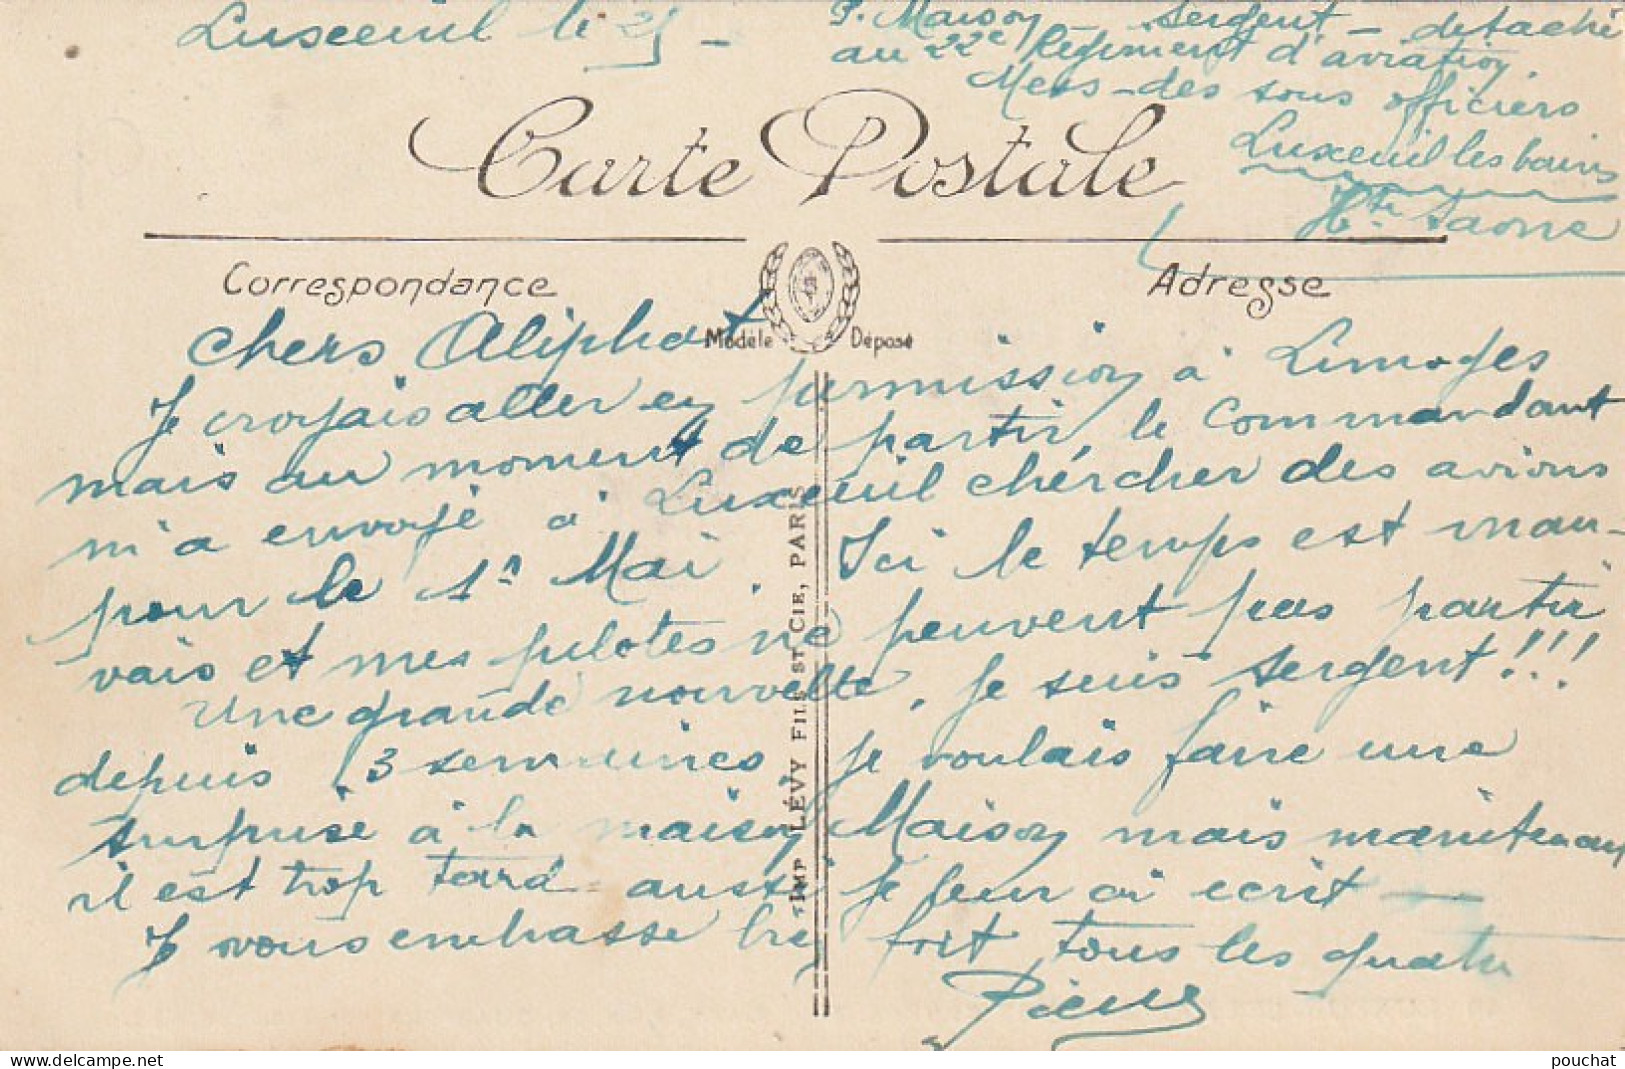 Luxeuil le 25 -
P. Maison - sergent - detaché
au 22e Régiment d'aviation.
Mess - des sous officiers
Luxeuil les bains
Hte Saone
Carte Postale
Correspondance
Adresse
Modèle Déposé
chers Aliphat
Je croyais aller en permission à Limoges
mais au moment de partir, le Commandant
m'a envoyé à Luxeuil chercher des avions
pour le 1er Mai. Ici le temps est mau-
vais et mes pilotes ne peuvent pas partir
Une grande nouvelle, je suis sergent!!!
depuis 3 semaines, je voulais faire une
surprise à la maison Maison mais maintenant
il est trop tard aussi je leur ai ecrit -
Je vous embrasse bien fort tous les quatre
Pierre
IMP LÉVY FILS ET CIE, PARIS
pouchat